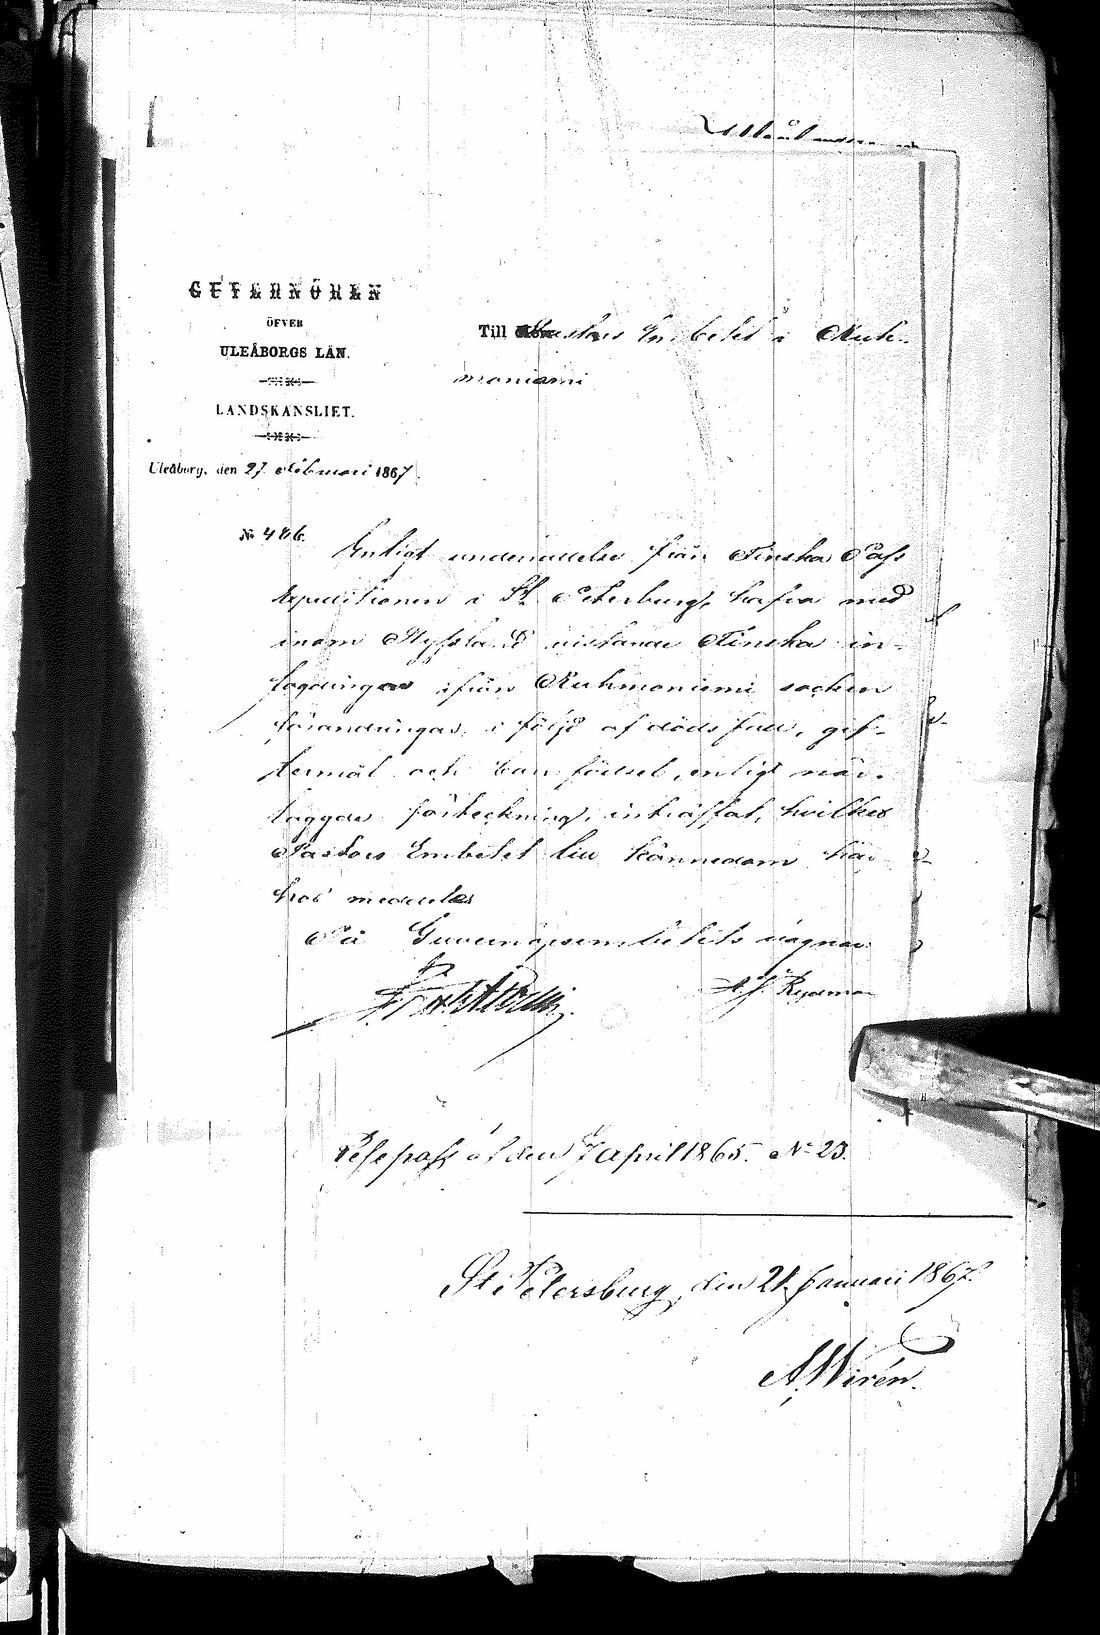 GUVERNÖREN
ÖFVER
ULEÅBORGS LÄN.
LANDSKANSLIET.
Uleåborg, den 27 Februari 1867.
№ 486.
Till Pastors Embetet i Kuh-
moniemi
Enligt underrättelse från Finska Pass
expeditionen i St Petersburg, hafva med
inom Ryssland vistande Finska in-
byggare ifrån Kuhmoniemi socken
förändringar i följd af dödsfall, gif-
termål och barnfödsel, enligt när-
lagda förteckning, inträffat, hvilket
Pastors Embetet till kännedom här
hos meddelas
På Guvernörsembetets vägnar
Resepass af den 7 April 1865. № 23.
St. Petersburg, den 21 Januari 1867.
A. Wirén.